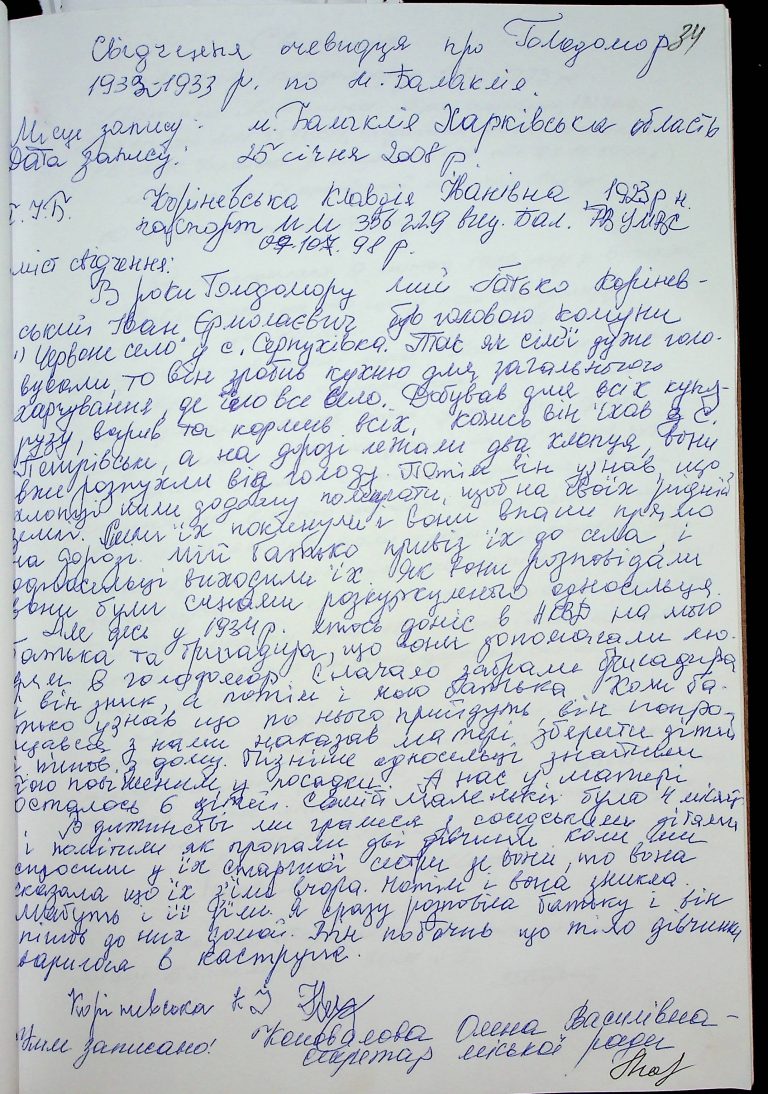 34
Свідчення очевидця про Голодомор
1932-1933 р. по м. Балаклія.
Місце запису: м. Балаклія Харківська область
Дата запису: 25 січня 2008 р.
Коріневська Клавдія Іванівна 1923 р н.
паспорт ММ 356229 вид. Бал. РВ УМВС
98 р.
зміст свідчення:
В роки Голодомору мій батько Корінев-
ський Іван Єрмолаєвич був головою комуни
"Червоне село" у с. Серпухівка. Так як сім'ї дуже голо-
вували, то він зробив кухню для загального
харчування, де їло все село. Добував для всіх куку-
рузу, варив та кормив всіх. Колись він їхав з с.
Петрівськи, а на дорозі лежали два хлопця, вони
вже розпухли від голоду. Потім він узнав, що
хлопці йшли додому помирати, щоб на своїй рідній
землі. Сили їх покинули і вони впали прямо
на дорозі. Мій батько привіз їх до села, і
односельці виходили їх. Як вони розповідали
вони були синами розкуркуленого односельця.
Але десь у 1934 р. хтось доніс в НКВД на мого
батька та бригадира, що вони допомагали лю-
дям в голодомор. Сначало забрали бригадира
і він зник, а потім і мого батька. Коли ба-
тько узнав що по нього прийдуть, він попро-
щався з нами наказав матері зберегти дітей
і пішов з дому. Пізніше односельці знайшли
його повішеним у посадки. А нас у матері
осталось 6 дітей. Самій маленькій було 4 місяці
В дитинстві ми грались з сусідськими дітями
і помітили як пропали дві дівчини. Коли ми
спросили у їх старшої сестри де вони, то вона
сказала що їх з'їли вчора. Потім і вона зникла.
Мабуть і її з'їли. Я сразу розповіла батьку і він
пішов до них домой. Він побачив що тіло дівчинки
варилося в каструлі.
Коріневська К І
Мною записано: Коновалова Олена Василівна -
секретар міської ради